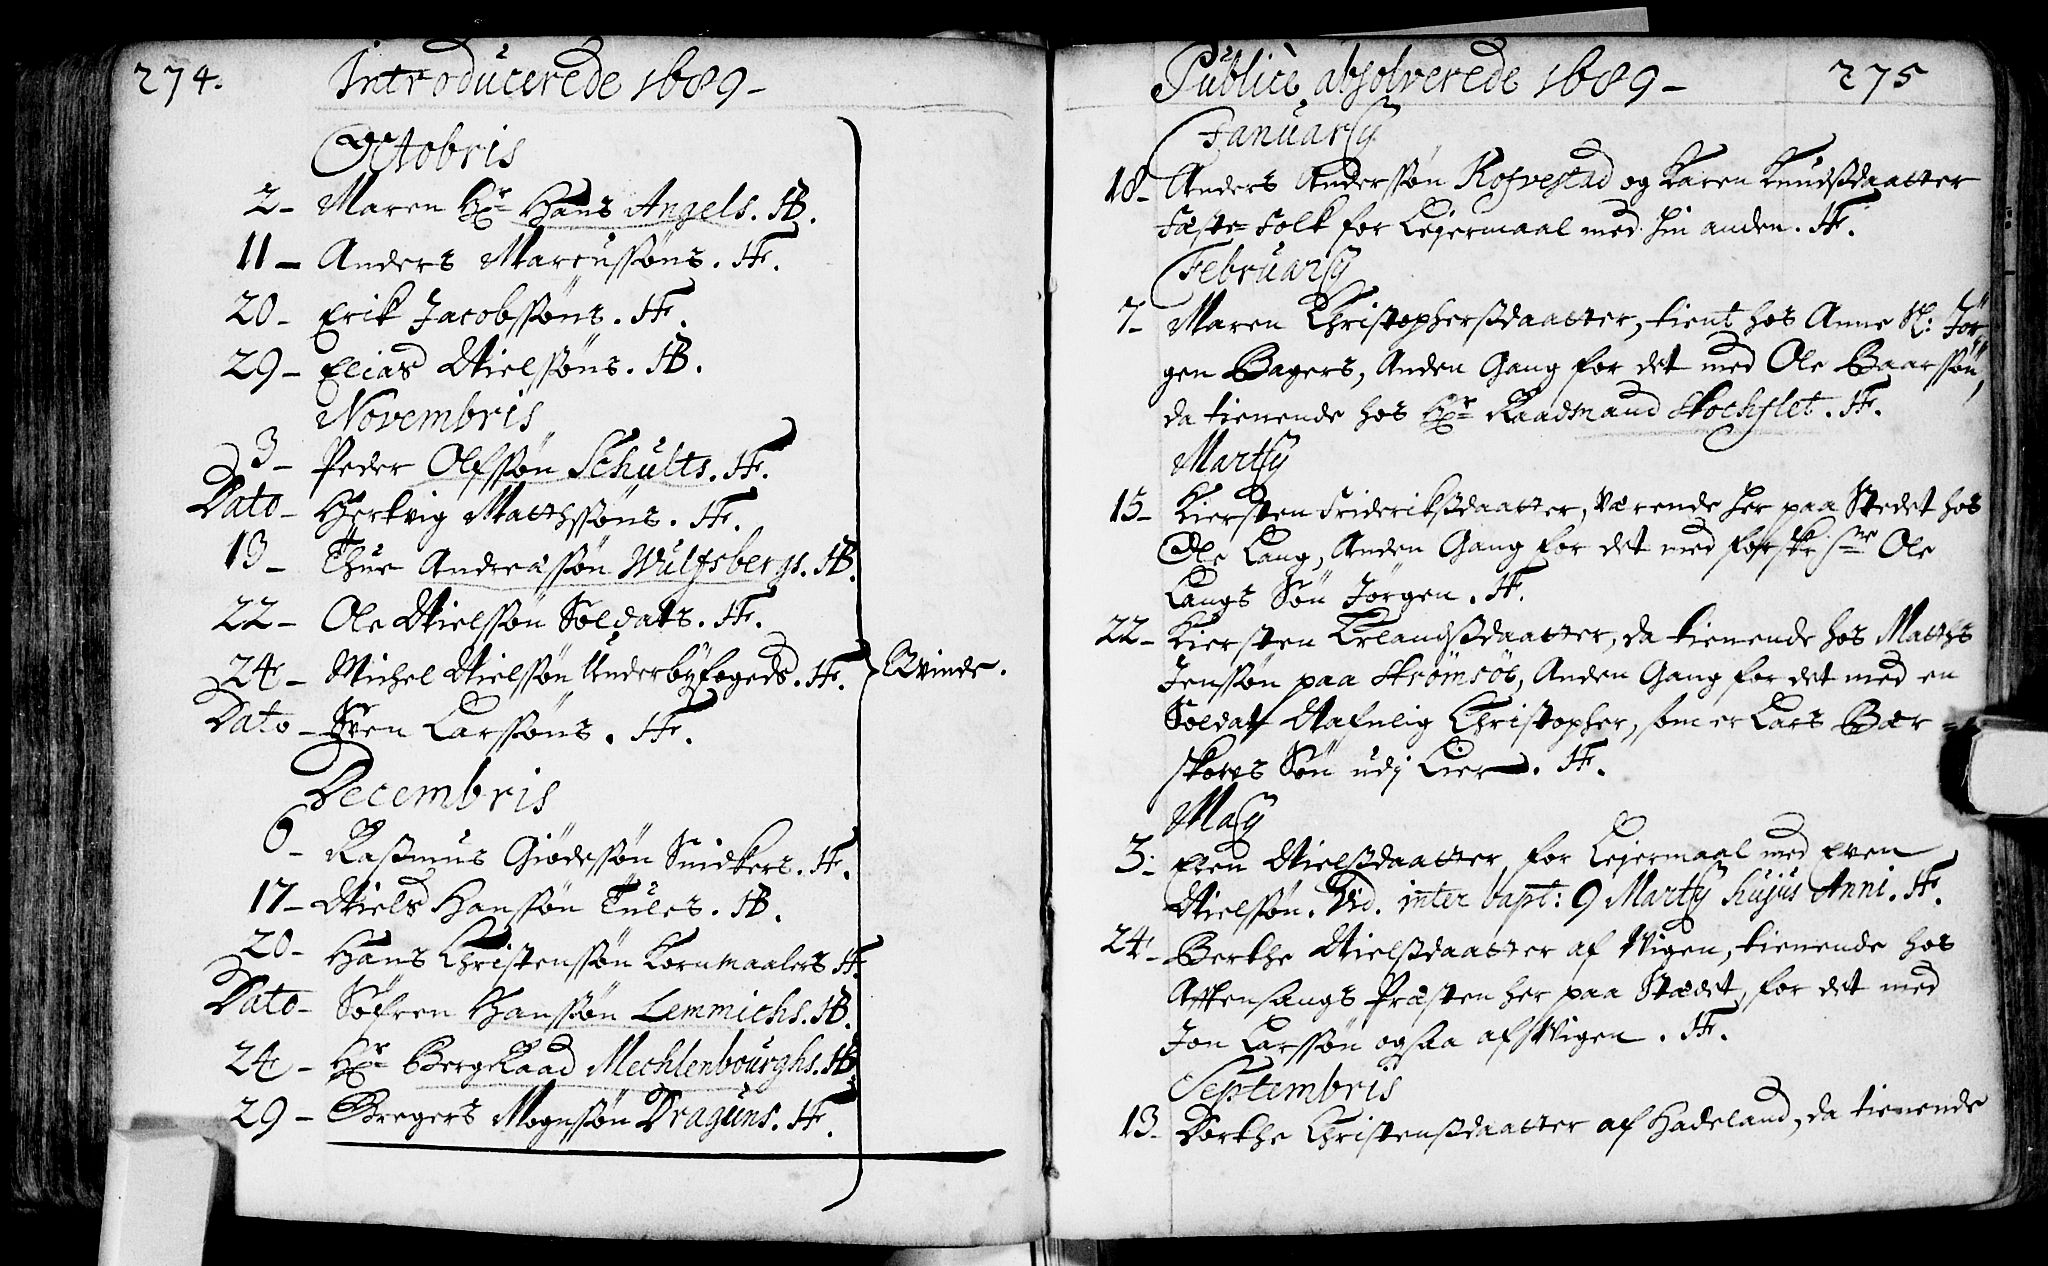 274. Introducerede 1689-
Octobris
2- Maren Hr Hans Angels. HB.
11- Anders Marcussøns. Hf.
20- Erik Jacobssøns. Hf.
29- Elias Nielssøns. HB.
Novembris
3- Peder Olfssøn Schults. Hf.
Dato- Hertvig Matthssøns. Hf.
13- Thue Andreæssøn Wulfsbergs. HB.
22- Ole Nielssøn Soldats. Hf.
24- Michel Nielssøn Underbyfogeds. Hf. } Qvinde.
Dato- Sven Larssøns. Hf.
Decembris
6- Rasmus Giødessøn Snidkers. Hf.
17- Niels Hanssøn Tules. HB.
20- Hans Christenssøn Kornmaalers Hf.
Dato- Søfren Hanssøn Lemmichs. HB.
24- Hr BergeRaad Mechlenbourghs. HB
29- Gregers Mognsøn Draguns. Hf.
Publicè absolverede 1689- 275
Januarij
18- Anders Anderssøn Rofvestad og Karen Knudsdaatter
Fæste-Folk for Lejermaal med hin anden. Hf.
Februarij
7- Maren Christophersdaatter, tient hos Anne Sl: Jør
gen Bagers, Anden Gang for det med Ole Baarssøn,
da tienende hos Hr Raadmand Stochflet. Hf.
Martij
15- Kiersten Frideriksdaatter, værende her paa Stedet hos
Ole Lang, Anden Gang for det med forskr: Ole
Langs Søn Jørgen. Hf.
22- Kiersten Erlandsdaatter, da tienende hos Matths
Jenssøn paa Strømsøe, Anden Gang for det med en
Soldat Nafnlig Christopher, som er Lars Bær-
skoves Søn udj Lier. Hf.
Maij
3. Elen Nielsdaatter for Lejermaal med Even
Nielssøn. Vid. inter bapt: 9 Martij hujus Anni. Hf.
24- Berthe Nielsdaatter af Vigen, tienende hos
Aftensangs Præsten her paa Stædet, for det med
Jon Larssøn ogsaa af Vigen. Hf.
Septembris
13- Dorthe Christensdaatter af Hadeland, da tienende